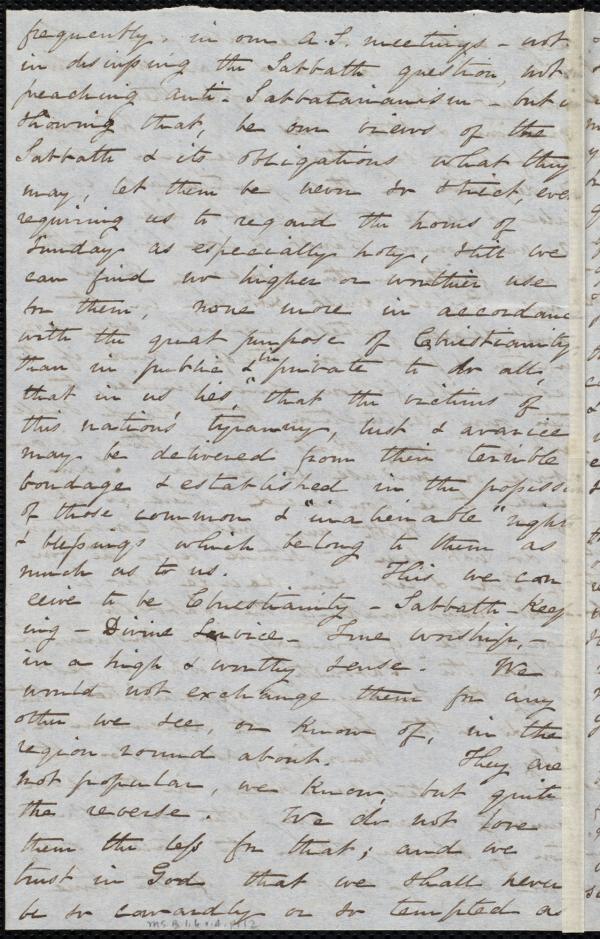 frequently, in our A.S. meetings - not
in discussing the Sabbath question, not
preaching anti-Sabbatarianism - but i
showing that, be our views of the
Sabbath & its obligations what they
may, let them be never so strict, eve
requiring us to regard the hours of
Sunday as especially holy, still we
can find no higher or worthier use
for them, none more in accordanc
with the great purpose of Christianity
than in public & in private to do all,
that in us lies, that the victims of
this nation's tyranny, lust & avarice
may be delivered from their terrible
bondage & established in the possess
of those common & "inalienable" right
& blessings which belong to them as
much as to us. This we con
ceive to be Christianity - Sabbath-keep
ing - Divine Service - True worship, -
in a high & worthy sense. We
would not exchange them for any
other we see, or know of, in the
region round about. They are
not popular, we know, but quite
the reverse. We do not love
them the less for that; and we
trust in God that we shall never
be so cowardly or so tempted as